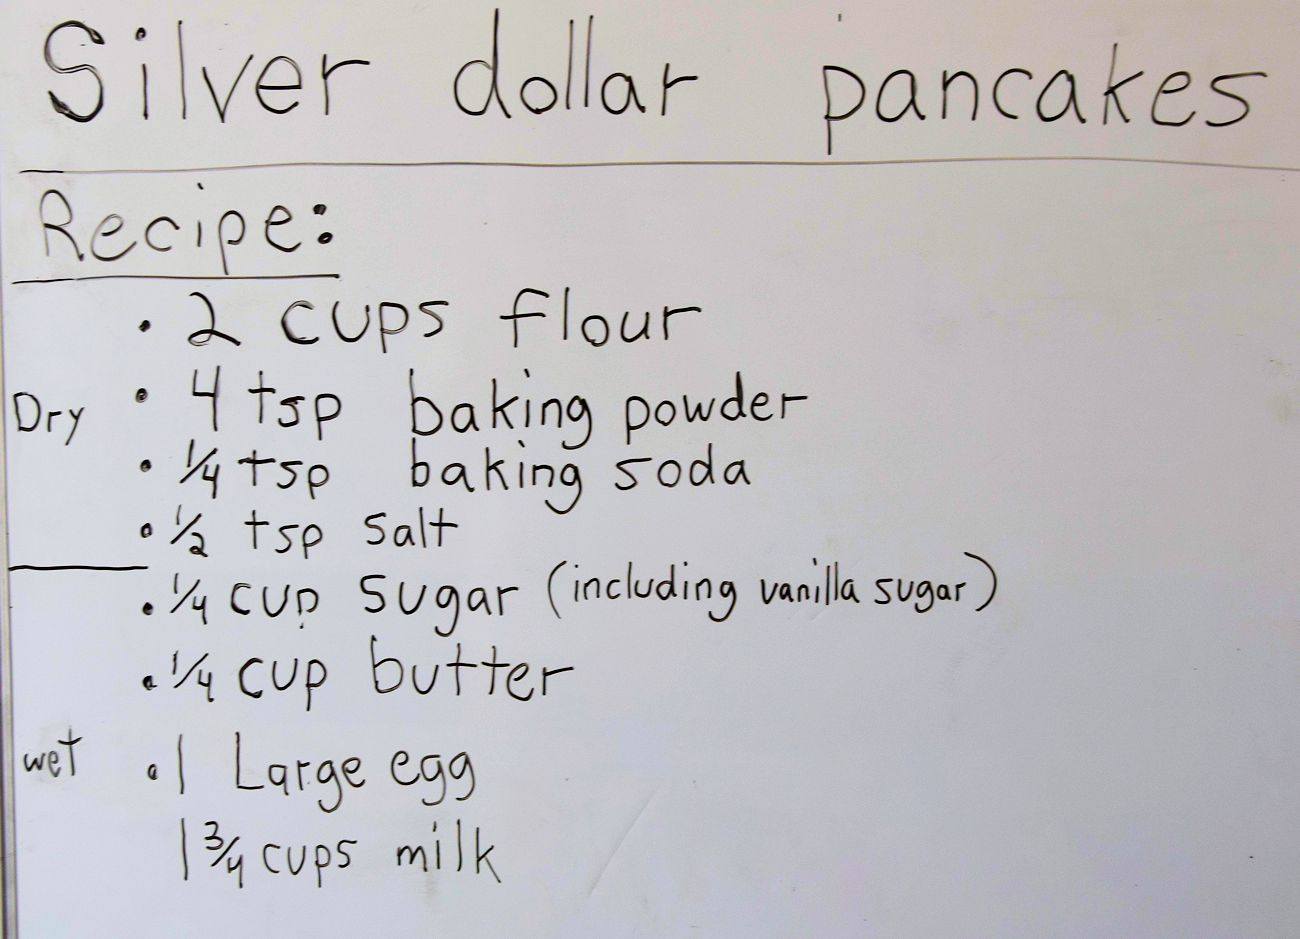 Silver dollar pancakes
Recipe:
• 2 cups flour
Dry • 4 tsp baking powder
• 1/4 tsp baking soda
• 1/2 tsp salt
• 1/4 cup sugar (including vanilla sugar)
• 1/4 cup butter
wet • 1 Large egg
1 3/4 cups milk